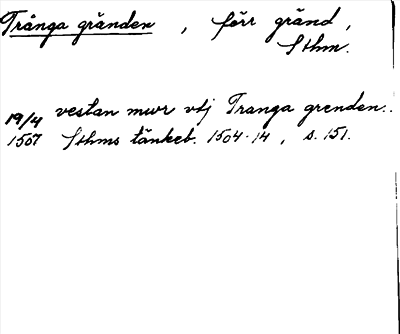 Trånga gränden , förr gränd,
Sthm.
19/4 vestan mwr vtj Tranga grenden..
1507 Sthms tänkeb. 1504-14, s. 151.